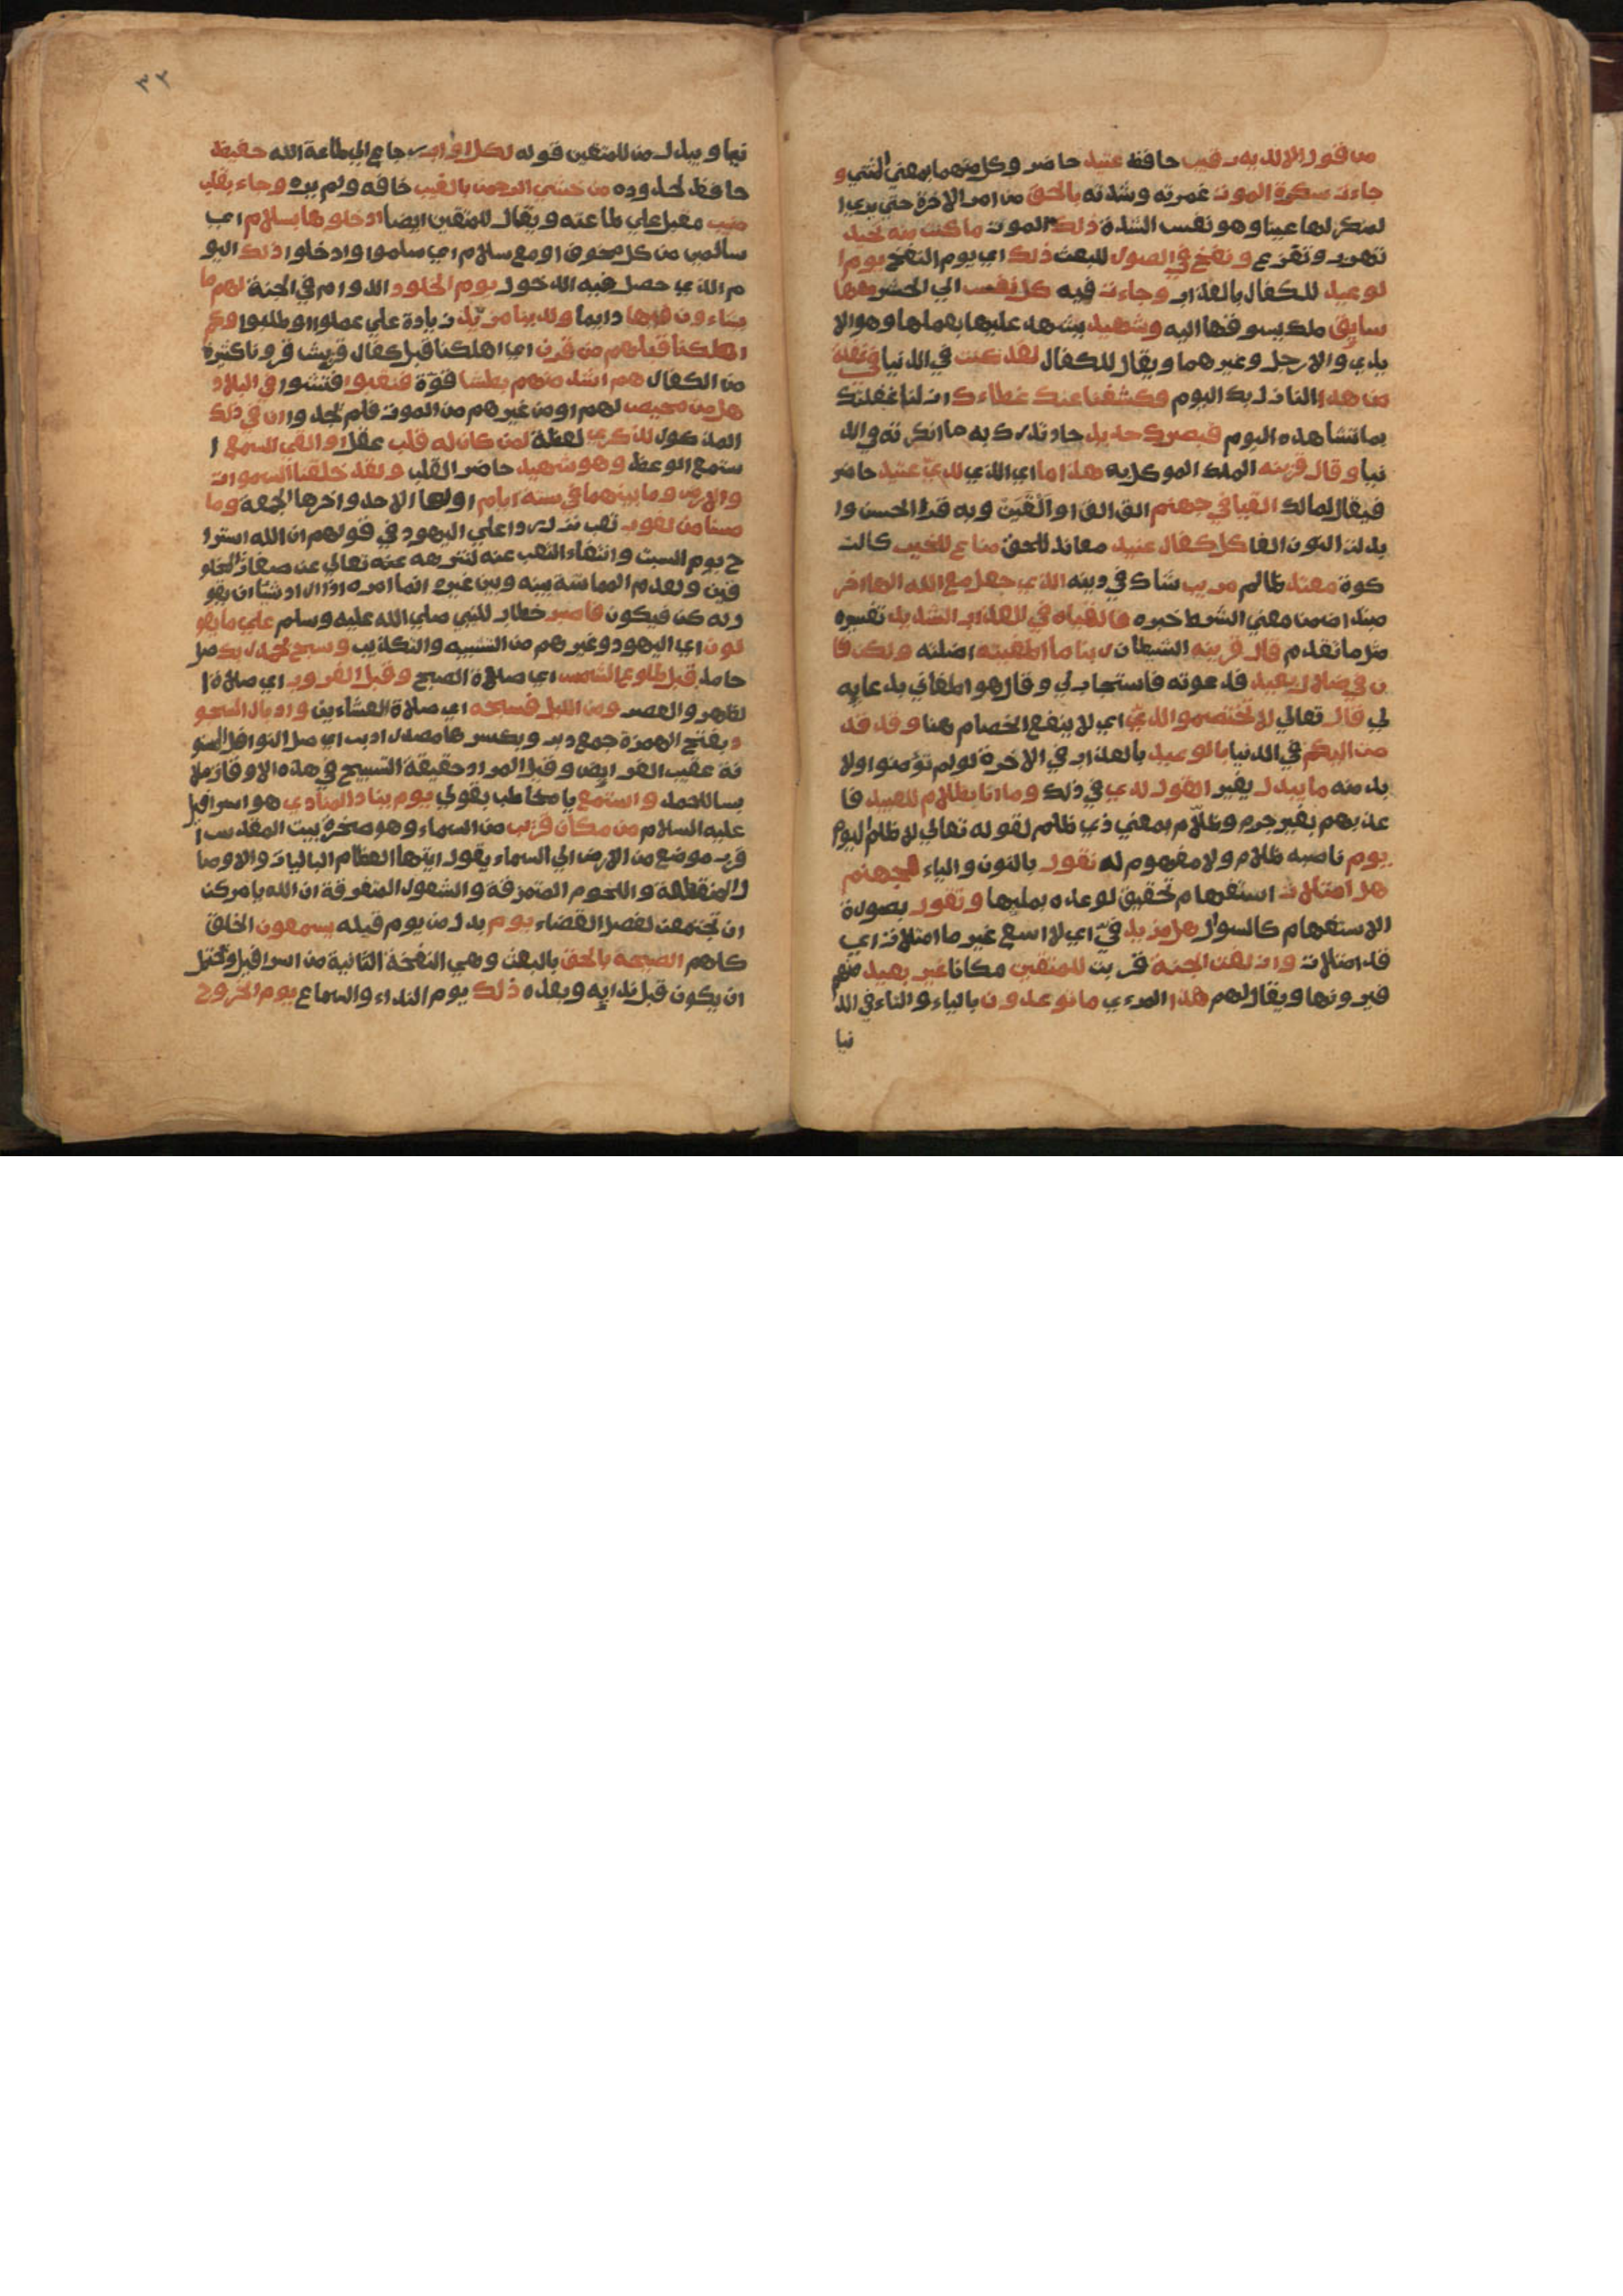 من قول الا لديه رقيب حافظ عتيد حاضر وكل منهما بمعني المثني و
جاءت سكرة الموت غمرته وشدته بالحق من امر الاخرة حتي يري ا
لمنكر لها عيبا وهو نفس الشدة ذلك الموت ما كنت منه تحيد
تهرب وتفزع ونفخ في الصور للبعث ذلك اي يوم النفخ يوم ا
لوعيد للكفار بالعذاب وجاءت فيه كل نفس الي الحشر معها
سايق ملك يسوقها اليه وشهيد يشهد عليها بعملها وهو الا
يدي والارجل وغيرهما ويقال للكفار لقد كنت في الدنيا في غفلة
من هذا النازل بك اليوم فكشفنا عنك غطاءك ازلنا غفلتك
بما تشاهده اليوم فبصرك حديد حاد تدرك به ما انكرته في الد
نيا وقال قرينه الملك الموكل به هذا ما اي الذي لدي عتيد حاضر
فيقال لمالك القيا في جهنم الق الق او القين وبه قرا الحسن وا
بدلت النون الفا كل كفار عنيد معاند للحق مناع للخير كالز
كوة معتد ظالم مريب شاك في دينه الذي جعل مع الله الها اخر
مبتدا ضمن معني الشرط خبره فالقياه في العذاب الشديد تفسيره
مثل ما تقدم قال قرينه الشيطان ربنا ما اطغيته اضللته ولكن كا
ن في ضلال بعيد فدعوته فاستجاب لي وقال هو اطغاني بدعايه
لي قال تعالي لا تختصموا لدي اي لا ينفع الخصام هنا وقد قد
مت اليكم في الدنيا بالوعيد بالعذاب في الاخرة لو لم تؤمنوا ولا
بد منه ما يبدل يغير القول لدي في ذلك وما انا بظلام للعبيد فا
عذبهم بغير جرم وظلّام بمعني ذي ظلم لقوله تعالي لا ظلم اليوم
يوم ناصبه ظلام ولا مفهوم له نقول بالنون والياء لجهنم
هل امتلات استفهام تحقيق لوعده بمليها وتقول بصورة
الاستفهام كالسوال هل من مزيد فيّ اي لا اسع غير ما امتلات اي
قد امتلات وازلفت الجنة قربت للمتقين مكانا غير بعيد منهم
فيرونها ويقال لهم هذا المرءي ما توعدون بالياء والتاء في الد
نيا
٣٢
نيا ويبدل من للمتقين قوله لكل اواب رجاع الي طاعة الله حفيظ
حافظ لحدوده من خشي الرحمن بالغيب خافه ولم يره وجاء بقلب
منيب مقبل علي طاعته ويقال للمتقين ايضا ادخلوها بسلام اي
سالمين من كل مخوف او مع سلام اي سلموا وادخلوا ذلك اليو
م الذي حصل فيه الدخول يوم الخلود الدوام في الجنة لهم ما
يشاءون فيها دايما ولدينا مزيد زيادة علي عملوا وطلبوا وكم
اهلكنا قبلهم من قرن اي اهلكنا قبل كفار قريش قرونا كثيرة
من الكفار هم اشد منهم بطشا قوّة فنقبوا فتشوا في البلاد
هل من محيص لهم او من غيرهم من الموت فلم تجدوا ان في ذلك
المذكور لذكري لعظة لمن كان له قلب عقل او القي السمع ا
ستمع الوعظ وهو شهيد حاضر القلب ولقد خلقنا السموات
والارض وما بينهما في ستة ايام اولها الاحد واخرها الجمعة وما
مسنا من لغوب تعب نزل ردا علي اليهود في قولهم ان الله استرا
ح يوم السبت وانتفاء التعب عنه لتنزهه عنه تعالي عن صفات المخلو
قين ولعدم المماسة بينه وبين غيره انما امره اذا اراد شيئا ان يقو
ل له كن فيكون فاصبر خطاب للنبي صلي الله عليه وسلم علي ما يقو
لون اي اليهود وغيرهم من التشبيه والتكذيب وسبح بحمد ربك صل
حامدا قبل طلوع الشمس اي صلاة الصبح وقبل الغروب اي صلاة ا
لظهر والعصر ومن الليل فسبحه اي صلاة العشاءين وادبار السجو
د بفتح الهمزة جمع دبر وبكسرها مصدر ادبر اي صل النوافل المسنو
نة عقيب الفرايض وقيل المراد حقيقة التسبيح في هذه الاوقات ملا
بسا للحمد واستمع يا مخاطب بقولي يوم يناد المنادي هو اسرافيل
عليه السلام من مكان قريب من السماء وهو صخرة بيت المقدس ا
قرب موضع من الارض الي السماء يقول ايتها العظام الباليات والاوصا
ل المنقطعة واللحوم المتمزقة والشعور المتفرقة ان الله يامركن
ان تجتمعن لفصل القضاء يوم بدل من يوم قبله يسمعون الخلق
كلهم الصيحة بالحق بالبعث وهي النفخة الثانية من اسرافيل ويحتمل
ان يكون قبل ندايه وبعده ذلك يوم النداء والسماع يوم الخروج